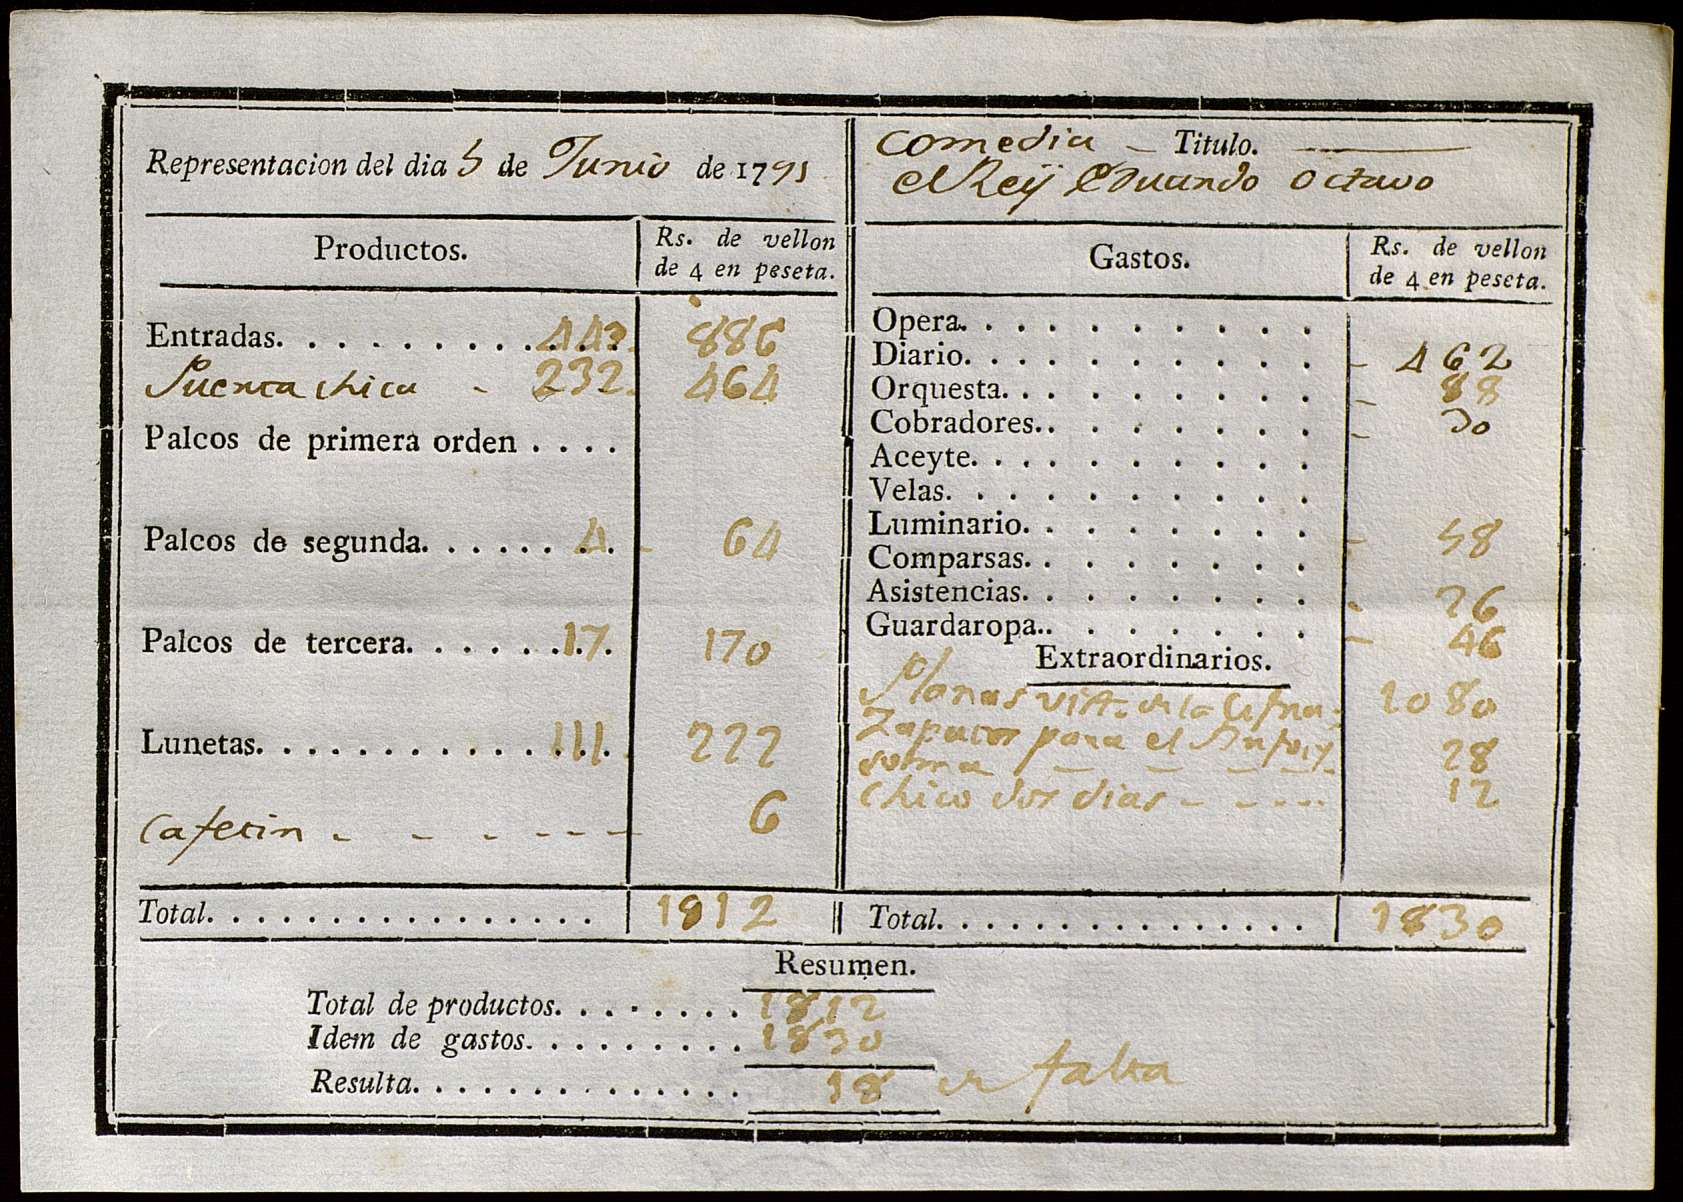 Representacion del dia 5 de Junio de 1791
Comedia – Titulo.
el Rey Eduardo Octavo
Productos. Rs. de vellon
de 4 en peseta.
Entradas. . . . . . . . . . . 443. 886
Puerta chica - 232. 464
Palcos de primera orden . . . .
Palcos de segunda. . . . . . . 4. - 64
Palcos de tercera. . . . . . . 17. 170
Lunetas. . . . . . . . . . . . . 111. 222
Cafetin - - - - - - 6
Total. . . . . . . . . . . . . . . . 1812
Gastos. Rs. de vellon
de 4 en peseta.
Opera. . . . . . . . . . .
Diario. . . . . . . . . . . - 462
Orquesta. . . . . . . . . . - 88
Cobradores. . . . . . . . . - 30
Aceyte. . . . . . . . . . .
Velas. . . . . . . . . . . .
Luminario. . . . . . . . .
Comparsas. . . . . . . . . - 58
Asistencias. . . . . . . . . - 26
Guardaropa. . . . . . . . . - 46
Extraordinarios.
de la 1080
Zapatos para el
28
chico dos dias - - - - - 12
Total. . . . . . . . . . . . . . . . 1830
Resumen.
Total de productos. . . . . . . . . 1812
Idem de gastos. . . . . . . . . . 1830
Resulta. . . . . . . . . . . . . . . 18 de falta